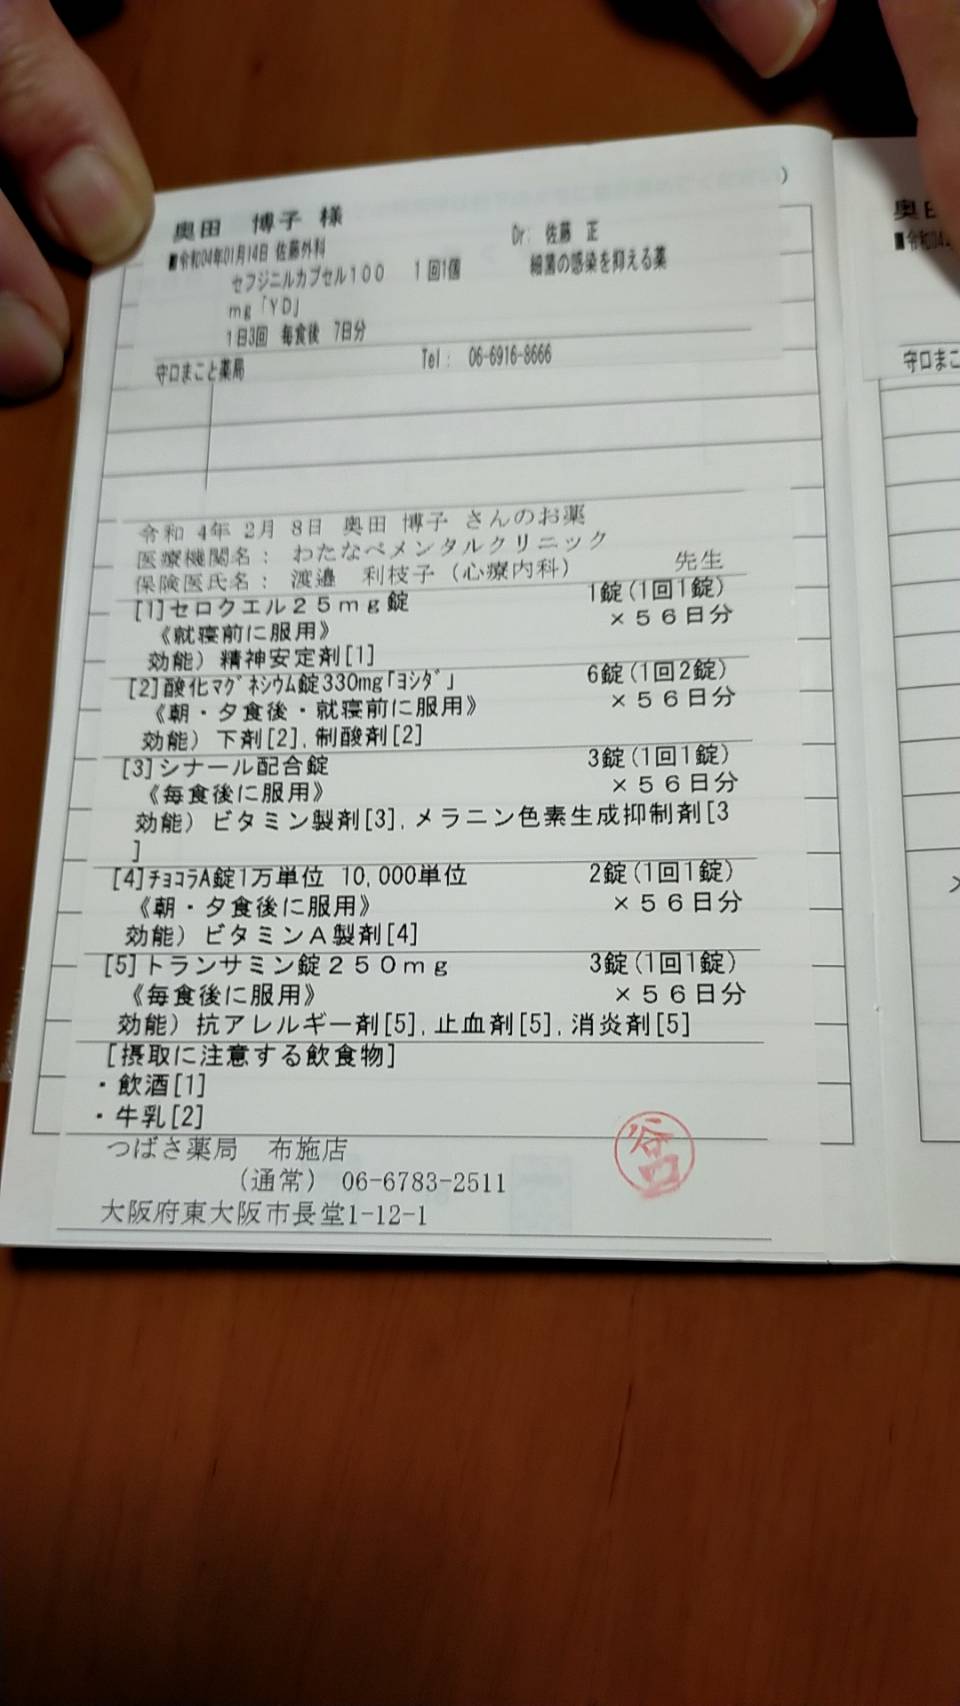 )
奥田 博子 様
■令和04年01月14日 佐藤外科 Dr: 佐藤 正
セフジニルカプセル100 1回1個 細菌の感染を抑える薬
mg「YD」
1日3回 毎食後 7日分
守口まこと薬局 Tel: 06-6916-8666
令和 4年 2月 8日 奥田 博子 さんのお薬
医療機関名: わたなべメンタルクリニック
保険医氏名: 渡邉 利枝子(心療内科) 先生
[1]セロクエル25mg錠 1錠(1回1錠)
《就寝前に服用》 ×56日分
効能)精神安定剤[1]
[2]酸化マグネシウム錠330mg「ヨシダ」 6錠(1回2錠)
《朝・夕食後・就寝前に服用》 ×56日分
効能)下剤[2],制酸剤[2]
[3]シナール配合錠 3錠(1回1錠)
《毎食後に服用》 ×56日分
効能)ビタミン製剤[3],メラニン色素生成抑制剤[3
]
[4]チョコラA錠1万単位 10,000単位 2錠(1回1錠)
《朝・夕食後に服用》 ×56日分
効能)ビタミンA製剤[4]
[5]トランサミン錠250mg 3錠(1回1錠)
《毎食後に服用》 ×56日分
効能)抗アレルギー剤[5],止血剤[5],消炎剤[5]
[摂取に注意する飲食物]
・飲酒[1]
・牛乳[2]
つばさ薬局 布施店
(通常) 06-6783-2511
大阪府東大阪市長堂1-12-1
谷口
奥田
■令和04
守口まこ